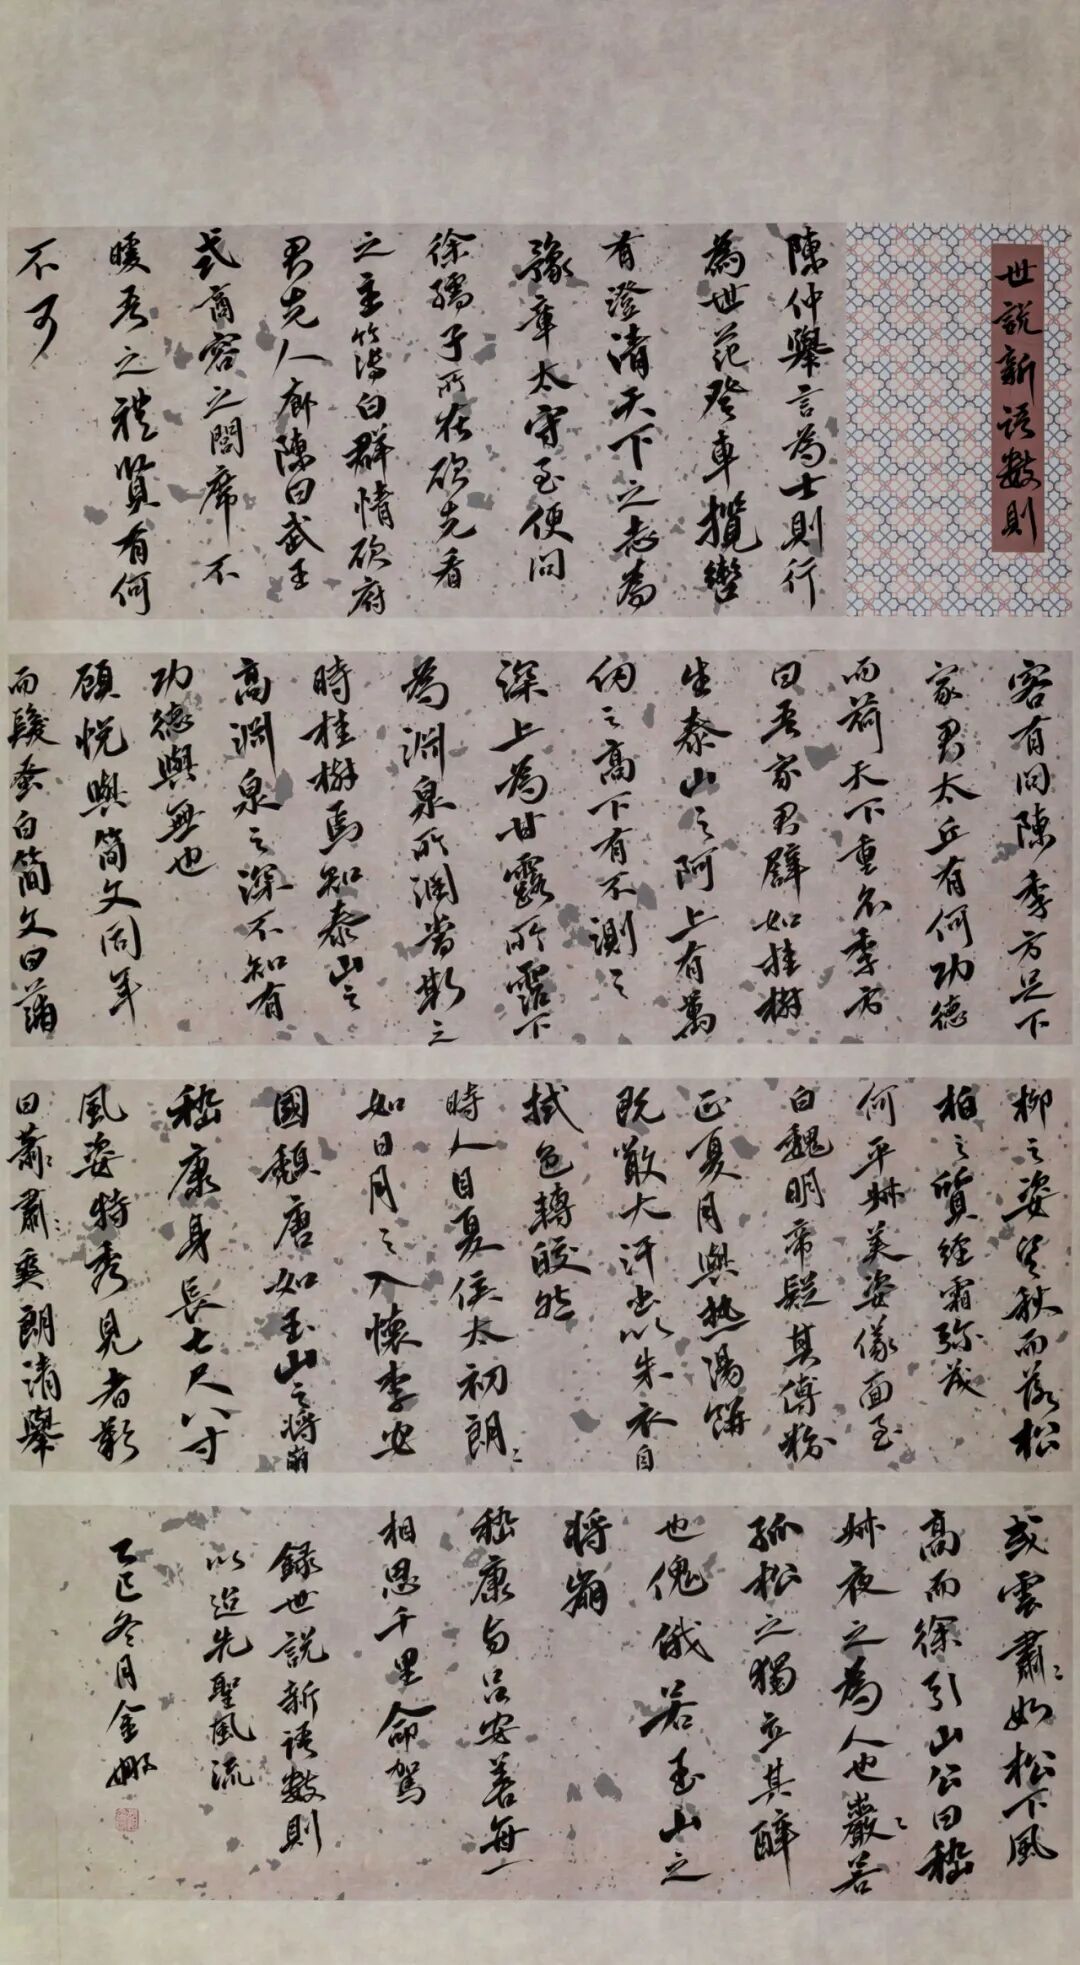 世說新語數則
陳仲舉言為士則行
為世范登車攬轡
有澄清天下之志為
豫章太守至便問
徐孺子所在欲先看
之主簿白群情欲府
君先入廨陳曰武王
式商容之閭席不
暖吾之禮賢有何
不可
客有問陳季方足下
家君太丘有何功德
而荷天下重名季方
曰吾家君譬如桂樹
生泰山之阿上有萬
仞之高下有不測之
深上為甘露所霑下
為淵泉所潤當斯之
時桂樹焉知泰山之
高淵泉之深不知有
功德與無也
顧悅與簡文同年
而髮蚤白簡文曰蒲
柳之姿望秋而落松
柏之質經霜弥茂
何平叔美姿儀面至
白魏明帝疑其傅粉
正夏月與热湯餅
既散大汗出以朱衣自
拭色轉皎然
時人目夏侯太初朗〻
如日月之入懷李安
國頹唐如玉山之將崩
嵇康身長七尺八寸
風姿特秀見者歎
曰蕭〻肅〻爽朗清舉
或雲肅〻如松下風
高而徐引山公曰嵇
叔夜之為人也巖〻若
孤松之獨立其醉
也傀俄若玉山之
將崩
嵇康与吕安善每一
相思千里命駕
錄世說新語數則
以追先聖風流
乙巳冬月金娜